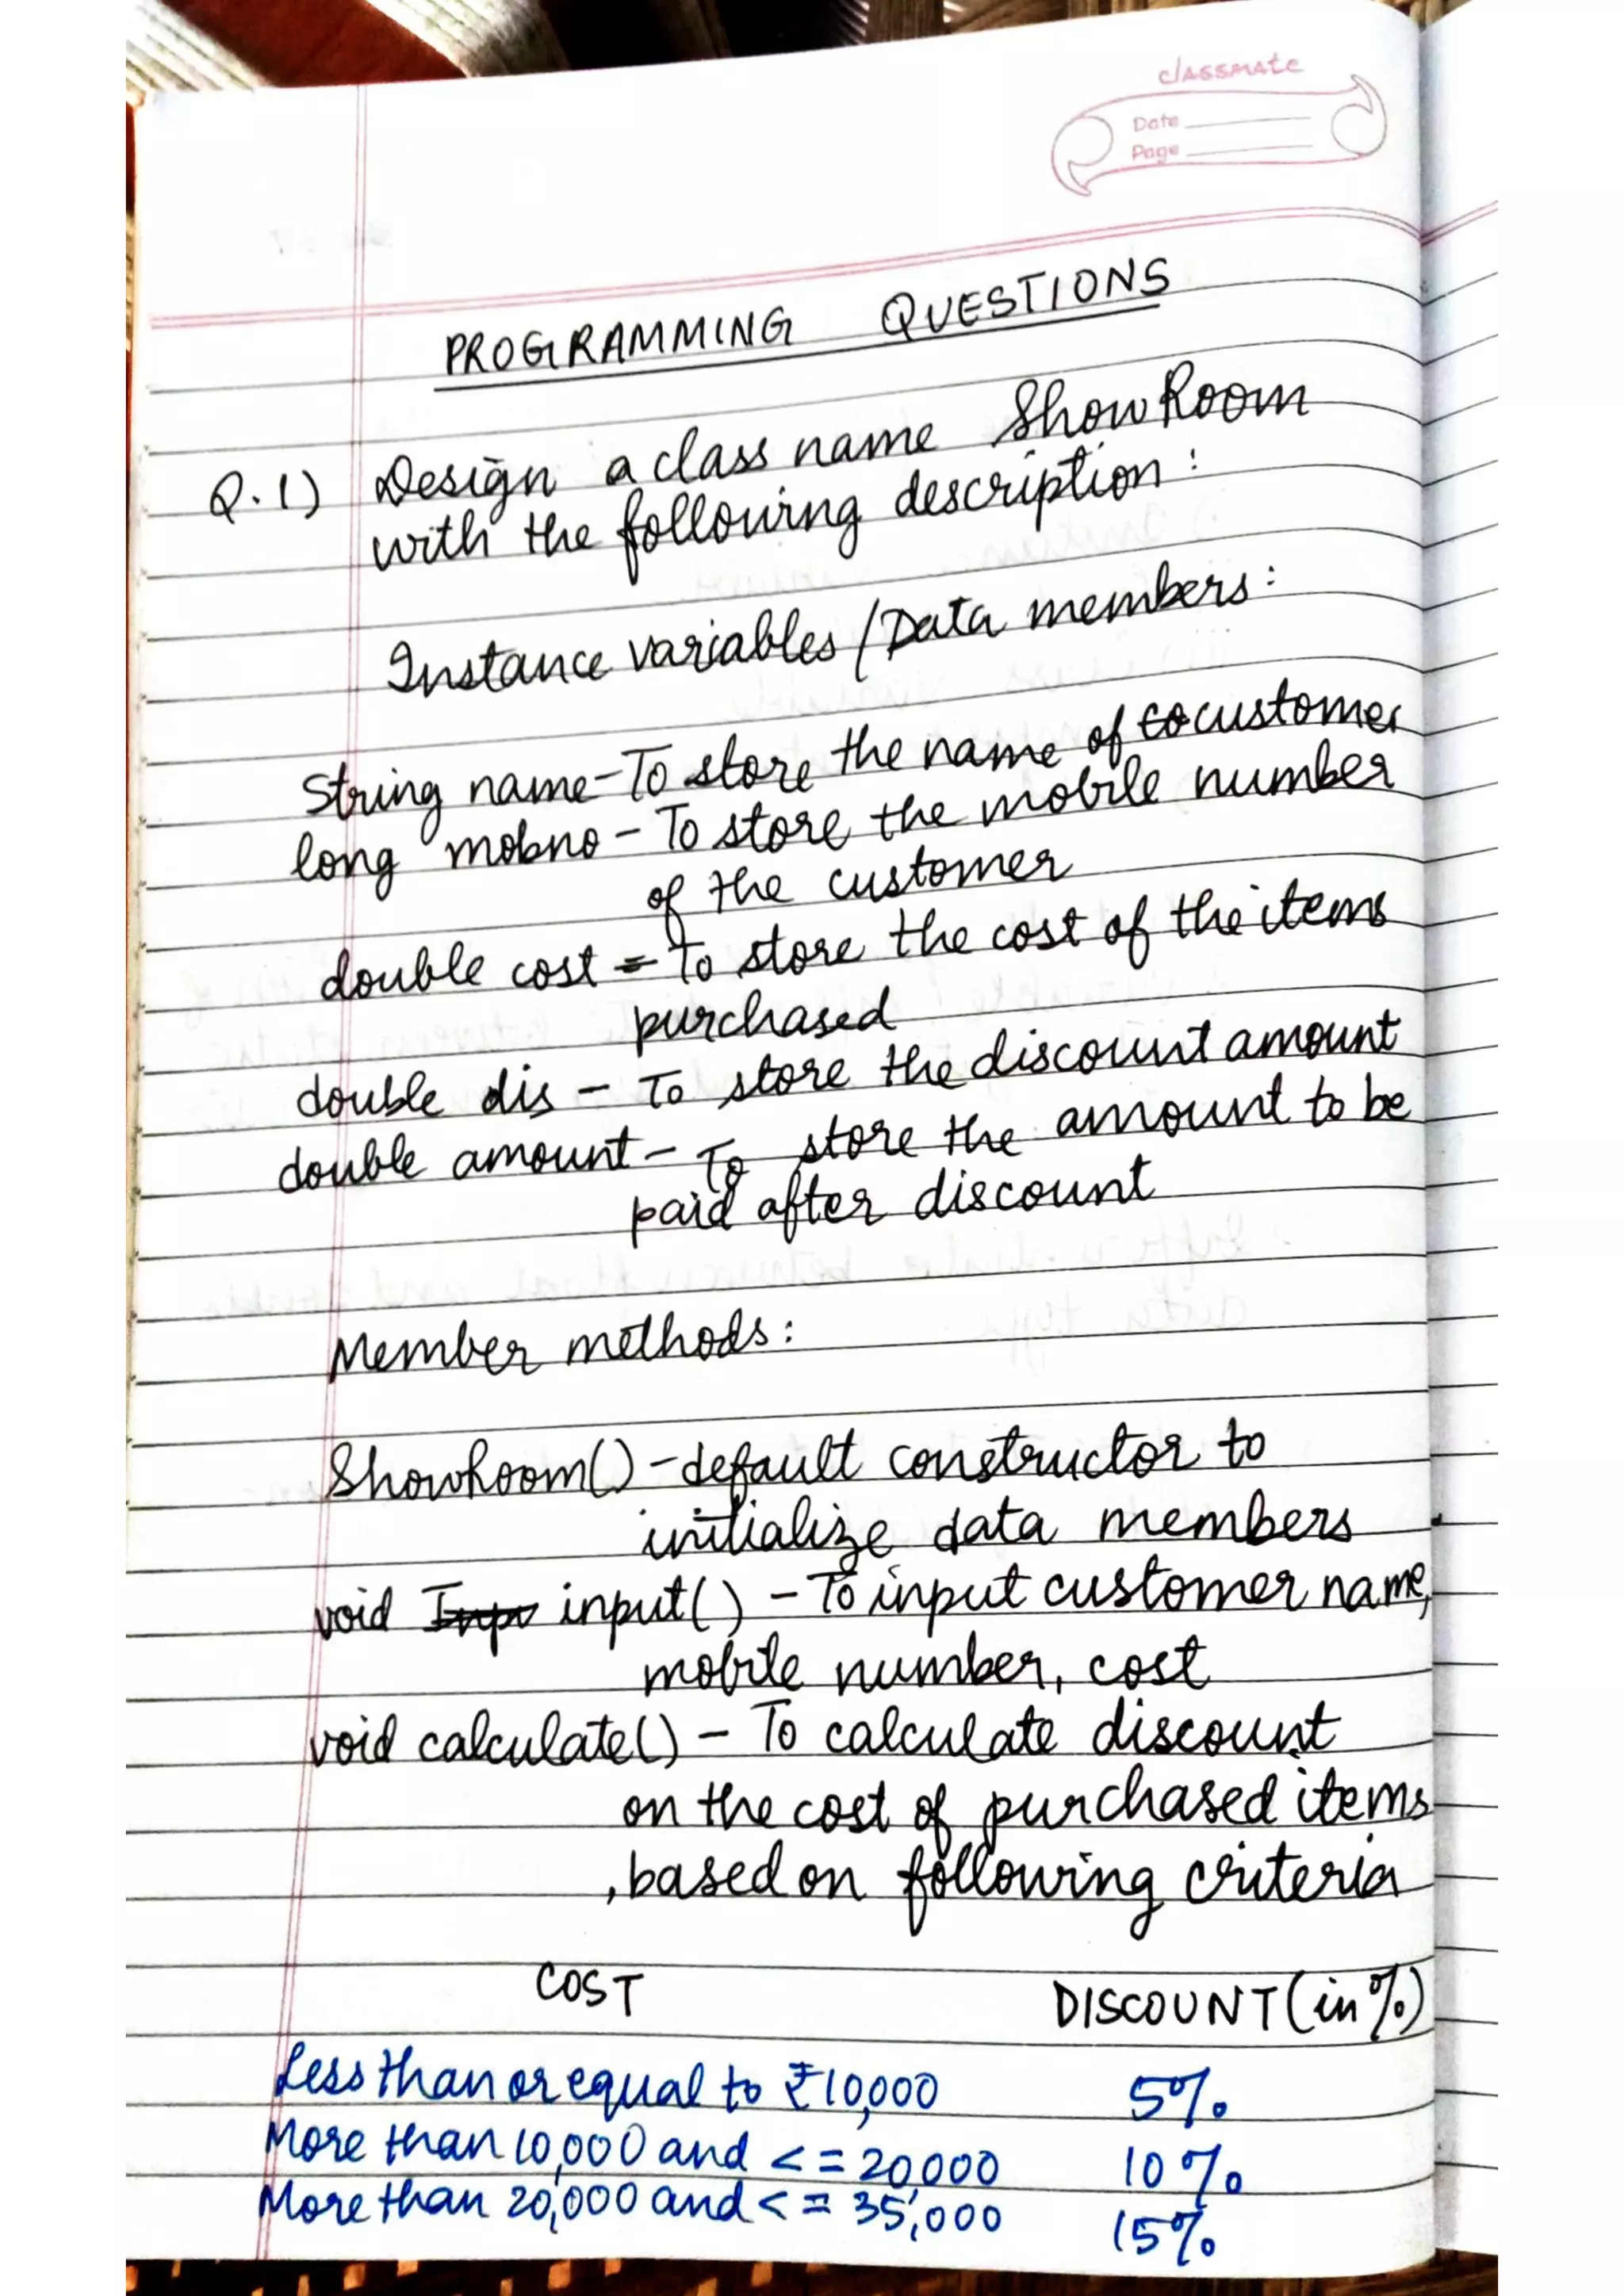 classmate
Date
Page
PROGRAMMING QUESTIONS
Q.1) Design a class name ShowRoom
with the following description:
Instance variables / Data members:
String name - To store the name of customer
long mobno - To store the mobile number
of the customer
double cost - To store the cost of the items
purchased
double dis - To store the discount amount
double amount - To store the amount to be
paid after discount
Member methods:
ShowRoom() - default constructor to
initialize data members
void input() - To input customer name,
mobile number, cost
void calculate() - To calculate discount
on the cost of purchased items
, based on following criteria
COST DISCOUNT (in %)
Less than or equal to ₹10,000 5%
More than 10,000 and <= 20,000 10%
More than 20,000 and <= 35,000 15%